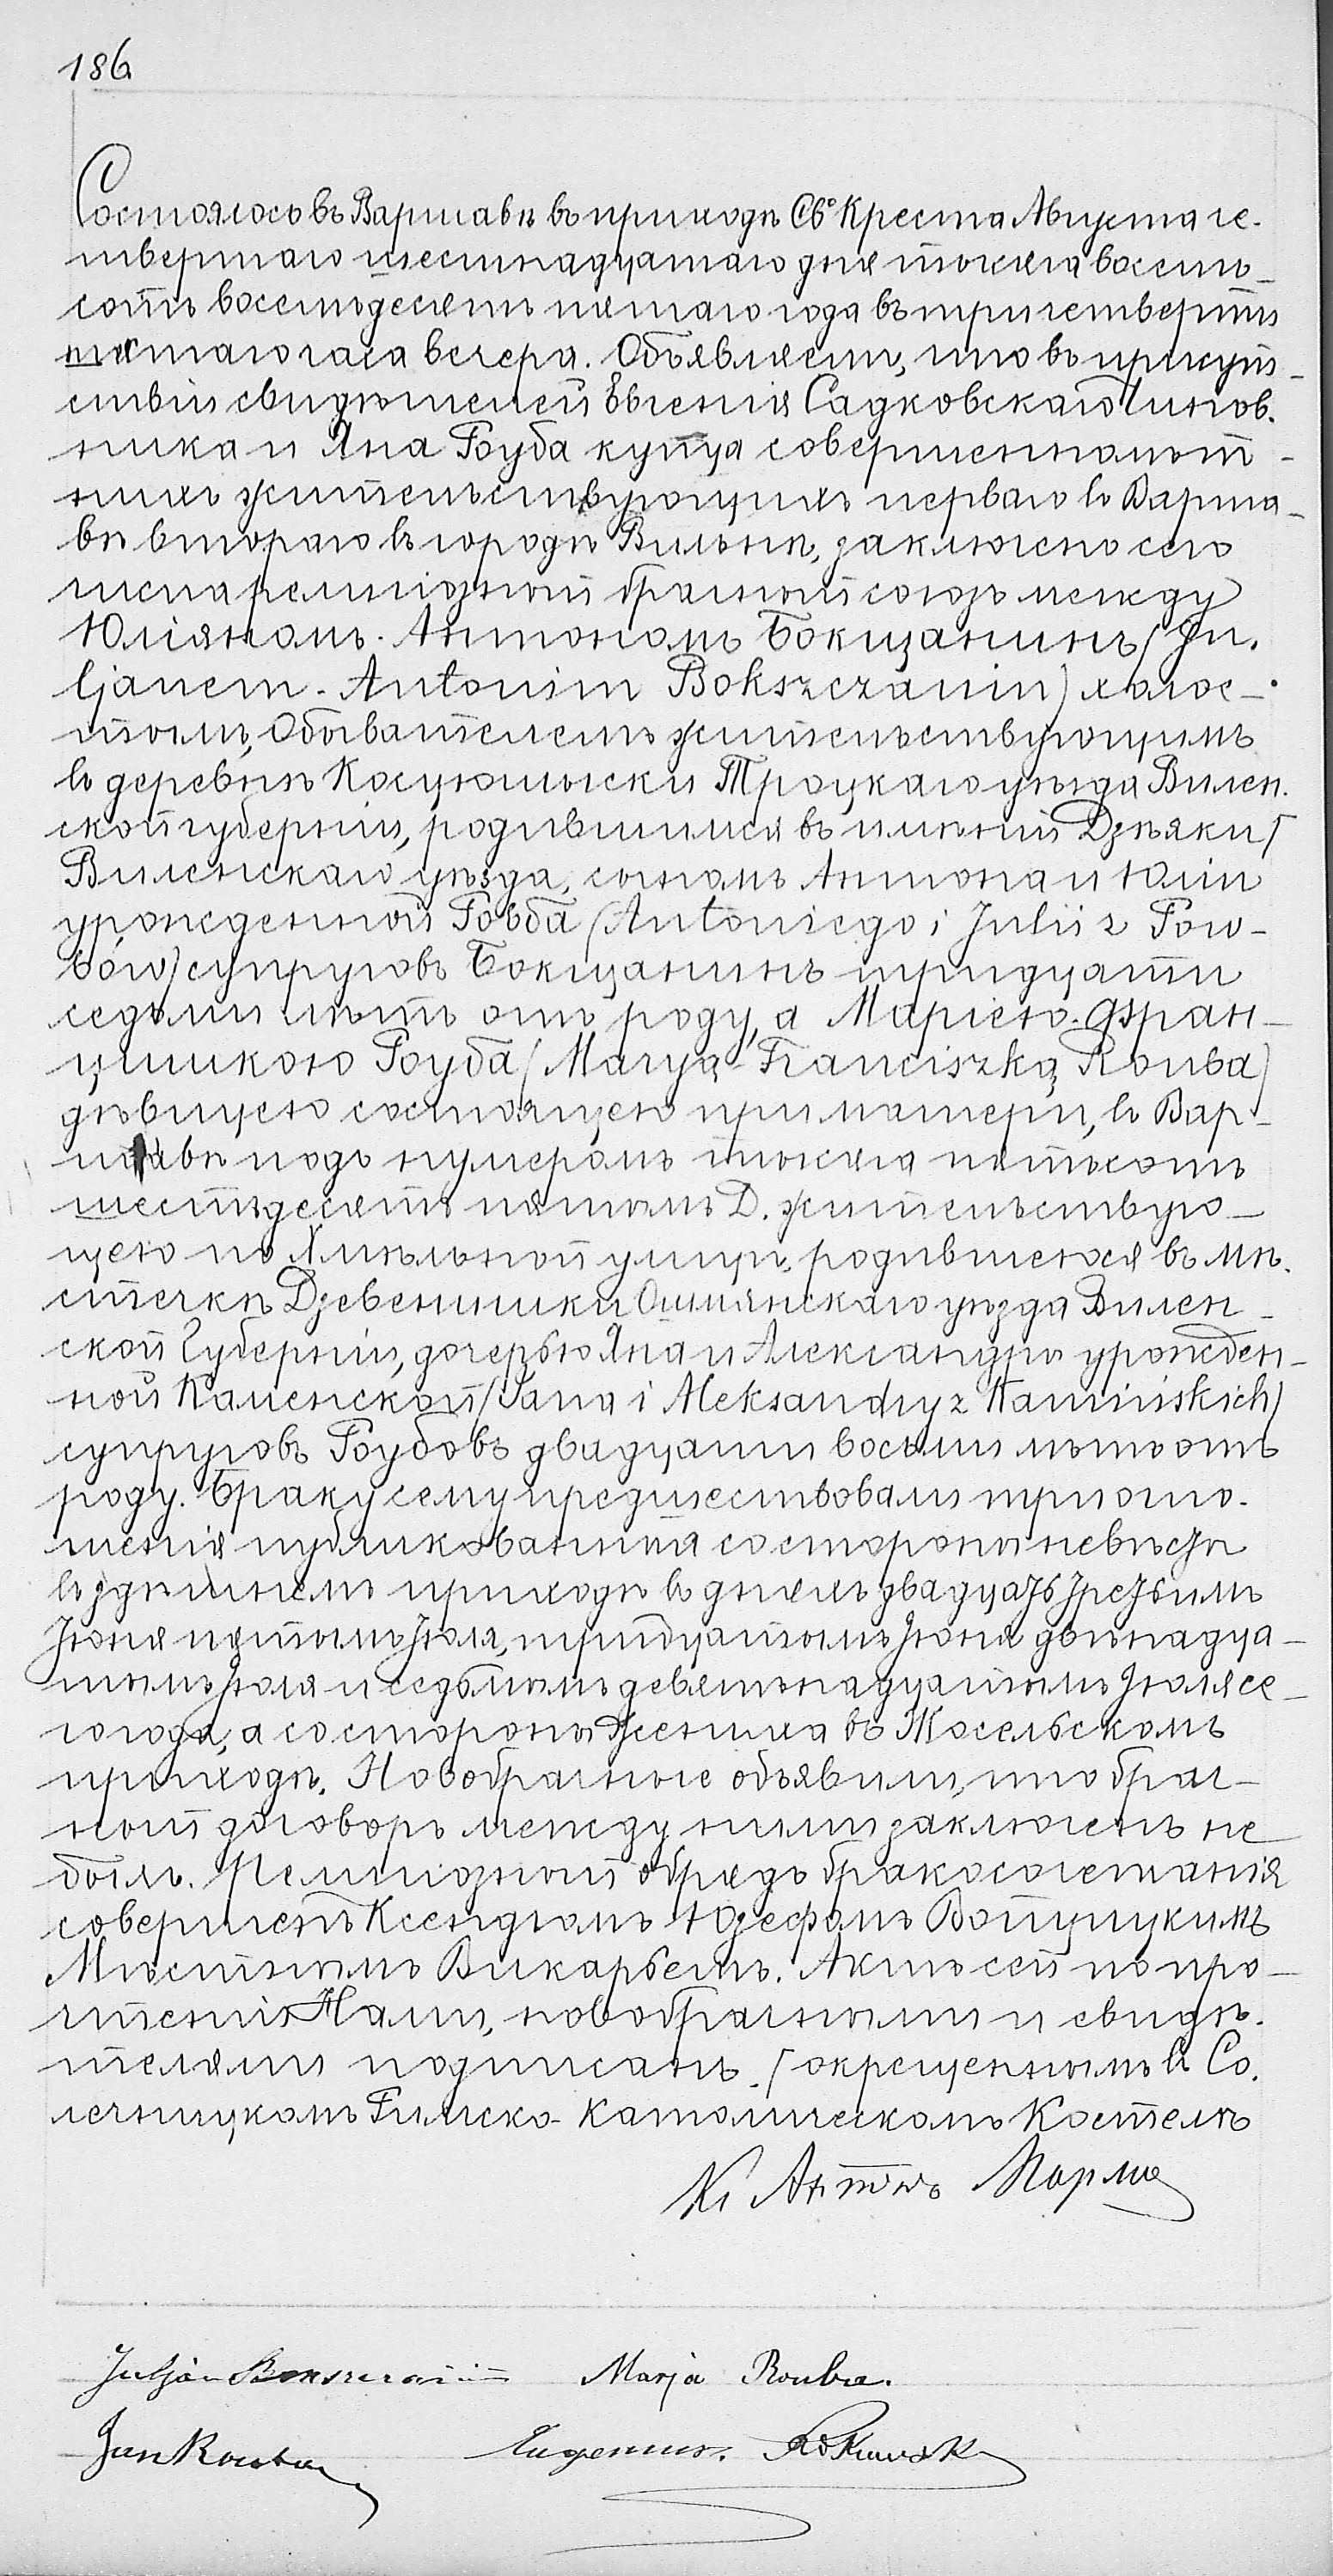 186
Состоялось въ Варшавѣ въ приходѣ Св. Креста Августа че-
твертаго шестнадцатаго дня тысяча восемь-
сотъ восемьдесятъ пятаго года въ три четверти
пятаго часа вечера. Объявляемъ, что въ присут-
ствіи свидѣтелей Евгенія Садковскаго чинов-
ника и Яна Роуба купца совершеннолѣт-
нихъ жительствующихъ перваго въ Варша-
вѣ втораго въ городѣ Вильнѣ, заключенъ сего
числа религіозный брачный союзъ между
Юліяномъ-Антономъ Бокщанинъ (Ju-
ljanem-Antonim Bokszczanin) холос-
тымъ, Обывателемъ жительствующимъ
въ деревнѣ Троцкаго уѣзда Вилен-
ской губерніи, родившимся въ имѣніи Дзѣяки /
Виленскаго уѣзда, сыномъ Антона и Юліи
урожденной Ровба (Antoniego i Julii z Row-
bów) супруговъ Бокщанинъ тридцати
седьми лѣтъ отъ роду, а Маріею-Фран-
цишкою Роуба (Maryą-Franciszką Rouba)
дѣвицею состоящею при матери, въ Вар-
шавѣ подъ нумеромъ тысяча пятьсотъ
шестьдесятъ пятымъ Д. жительствую-
щею по Хмѣльной улицѣ, родившеюся въ мѣ-
стечкѣ Девенишки Ошмянскаго уѣзда Вилен-
ской Губерніи, дочерью Яна и Александры урожден-
ной Каменской (Jana i Aleksandry z Kamińskich)
супруговъ Роубовъ двадцати восьми лѣтъ отъ
роду. Браку сему предшествовали три огло-
шенія публикованныя со стороны невѣсты
въ здѣшнемъ приходѣ въ дняхъ двадцать третьимъ
Іюня пятымъ Іюля, тридцатымъ Іюня двѣнадца-
тымъ Іюля и седьмымъ девятнадцатымъ Іюля се-
го года, а со стороны жениха въ Жосельскомъ
приходѣ. Новобрачные объявили, что брач-
ный договоръ между ними заключенъ не
былъ. Религіозный обрядъ бракосочетанія
совершенъ Ксендзомъ Юзефомъ Войцицкимъ
Мѣстнымъ Викаріемъ. Актъ сей по про-
чтеніи Нами, новобрачными и свидѣ-
телями подписанъ. / окрещеннымъ въ Со-
лечницкомъ Римско-Католическомъ Костелѣ
Кс Антонъ
Juljan Bokszczanin Marja Rouba.
Jan Rouba Eugeniusz